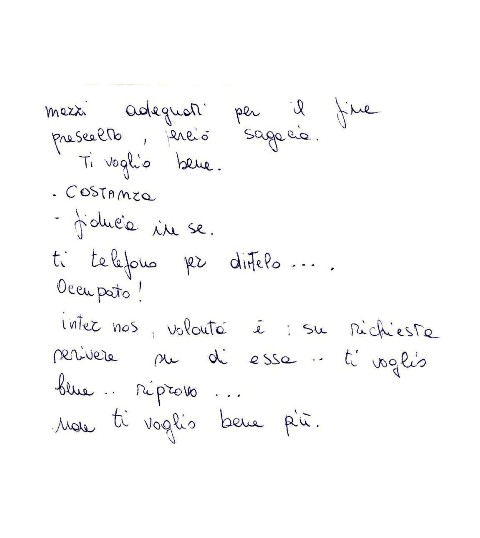 mezzi adeguati per il fine
prescelto, perciò sagacia.
Ti voglio bene.
. COSTANZA
- fiducia in se.
ti telefono per dirtelo ....
Occupato!
inter nos, volontà è : su richiesta
scrivere su di essa .. ti voglio
bene .. riprovo ...
Non ti voglio bene più.